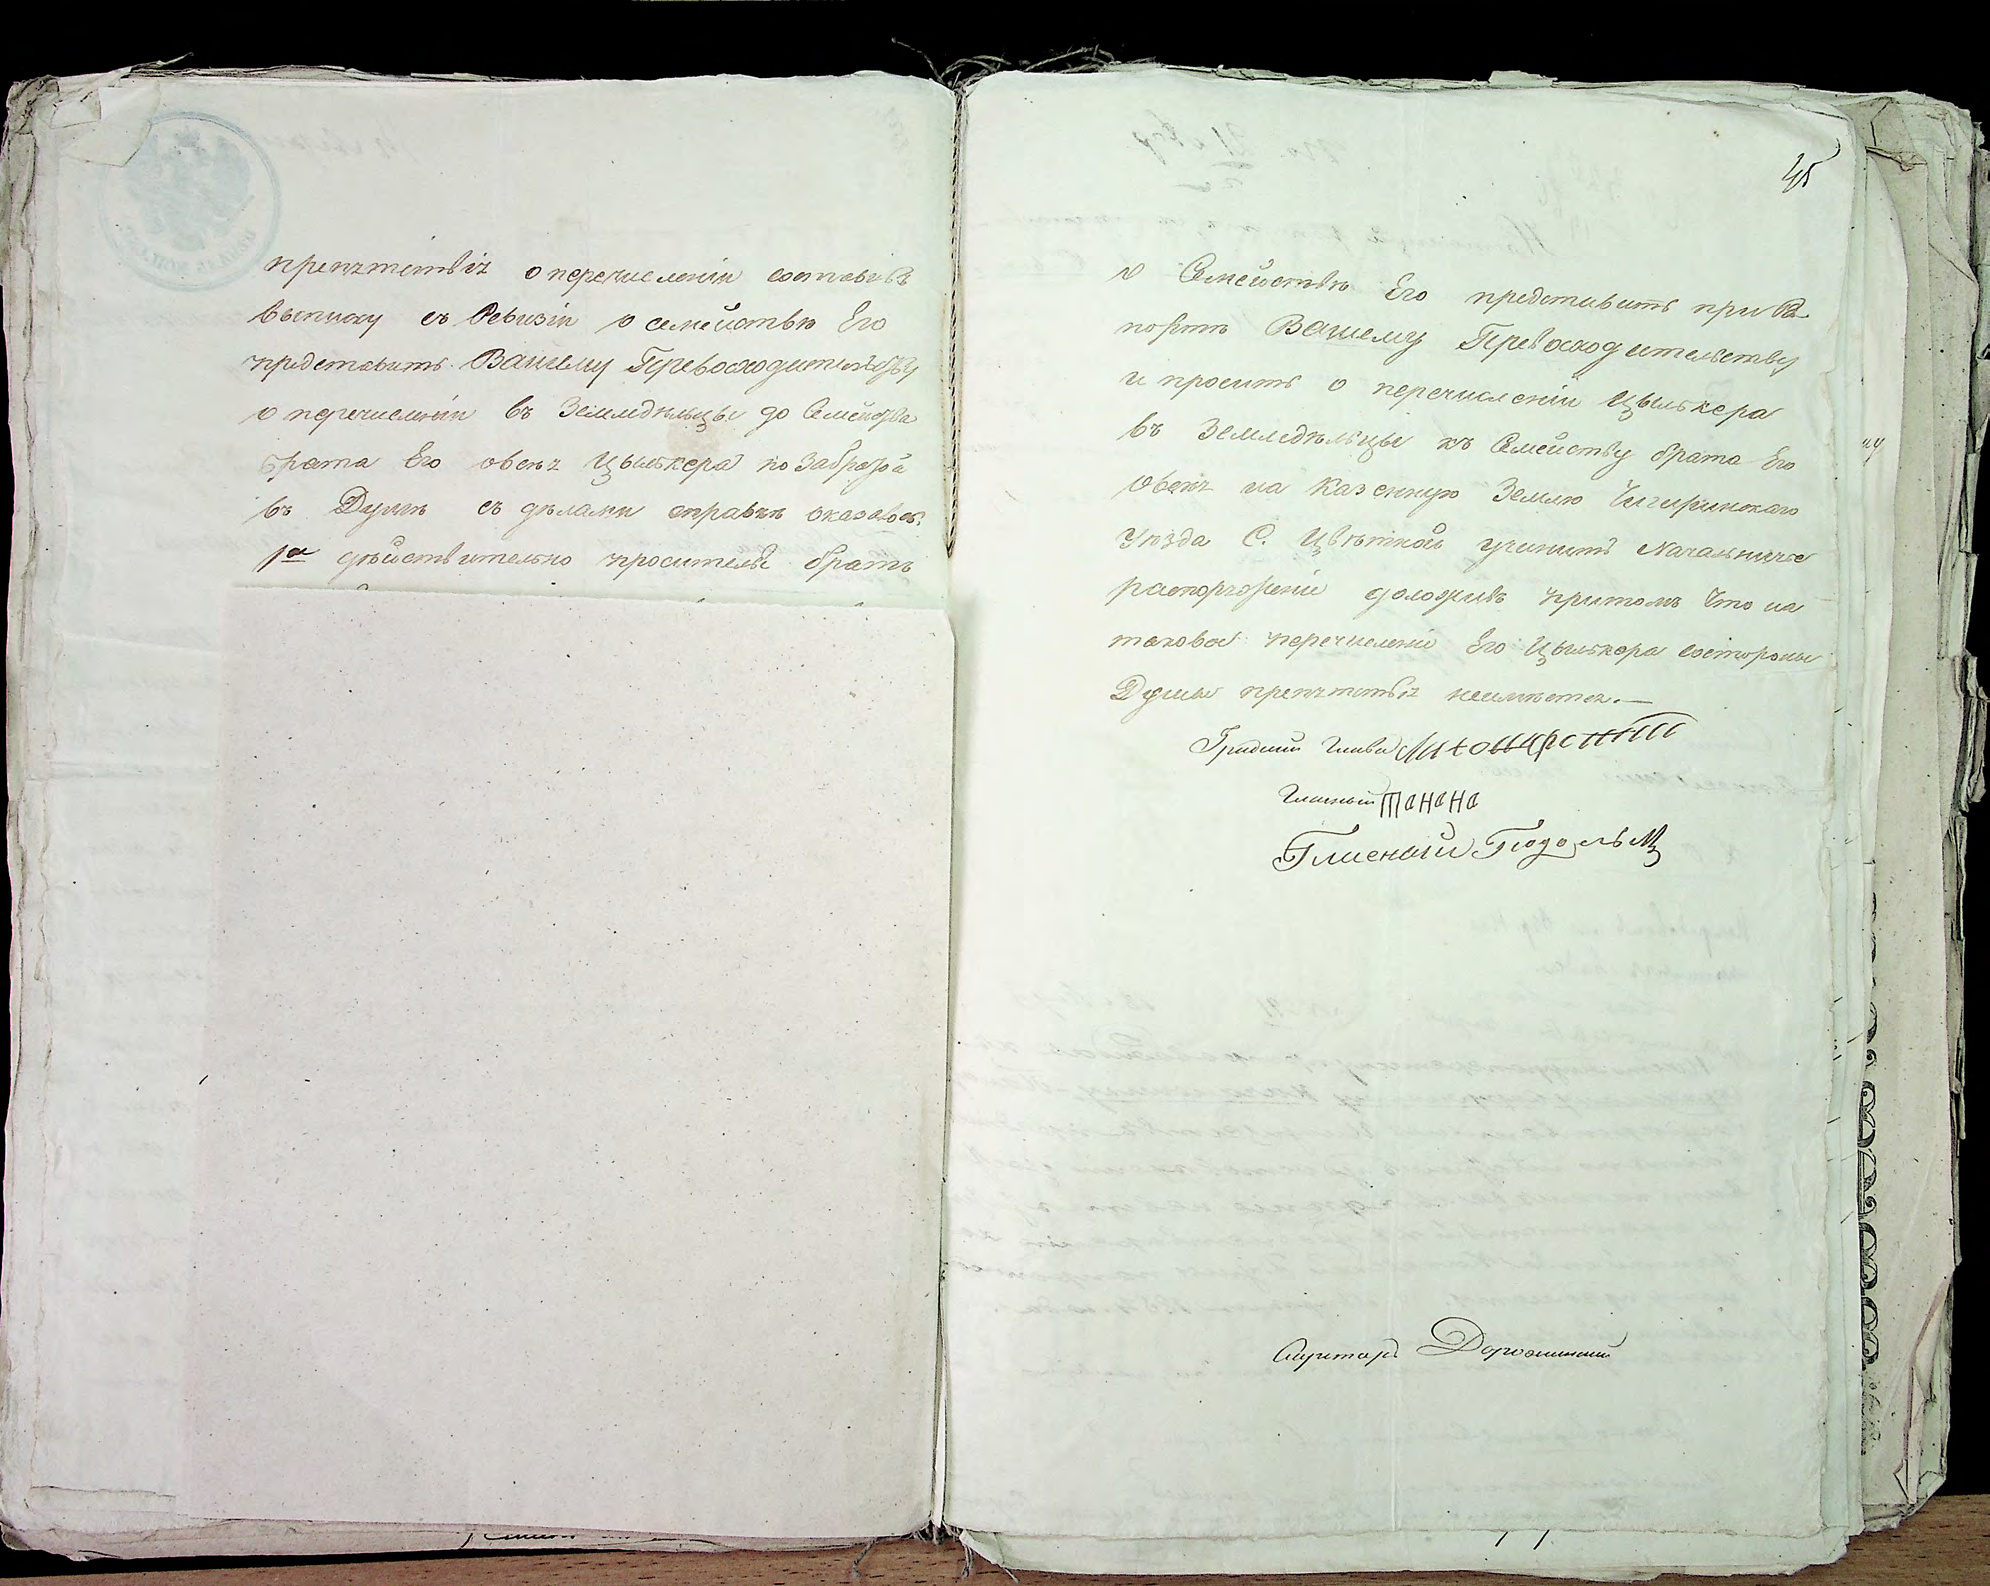 препятствія о перечисленіи составивъ
выписку съ Ревизіи о семействѣ Его
представить Вашему Превосходительству
о перечисленіи въ Земледѣльцы до Семейства
брата Его Овсѣя Цылькера по Забратой
въ Думѣ съ дѣлами справкѣ оказалось:
1е дѣйствительно проситель братъ
45
о Семействѣ Его представить при Ра
портѣ Вашему Превосходительству
и просить о перечисленіи Цылькера
въ Земледѣльцы къ Семейству брата Его
Овсѣя на Казенную Землю Чигиринскаго
Уѣзда С. Цвѣтной учинить Началничье
распоряженіе доложивъ притомъ что на
таковое перечисленіе Его Цылькера состороны
Думы препятствія неимѣется.—
Градский Глава
Гласный
Гласный Подольск
Секретарь Дорожинский